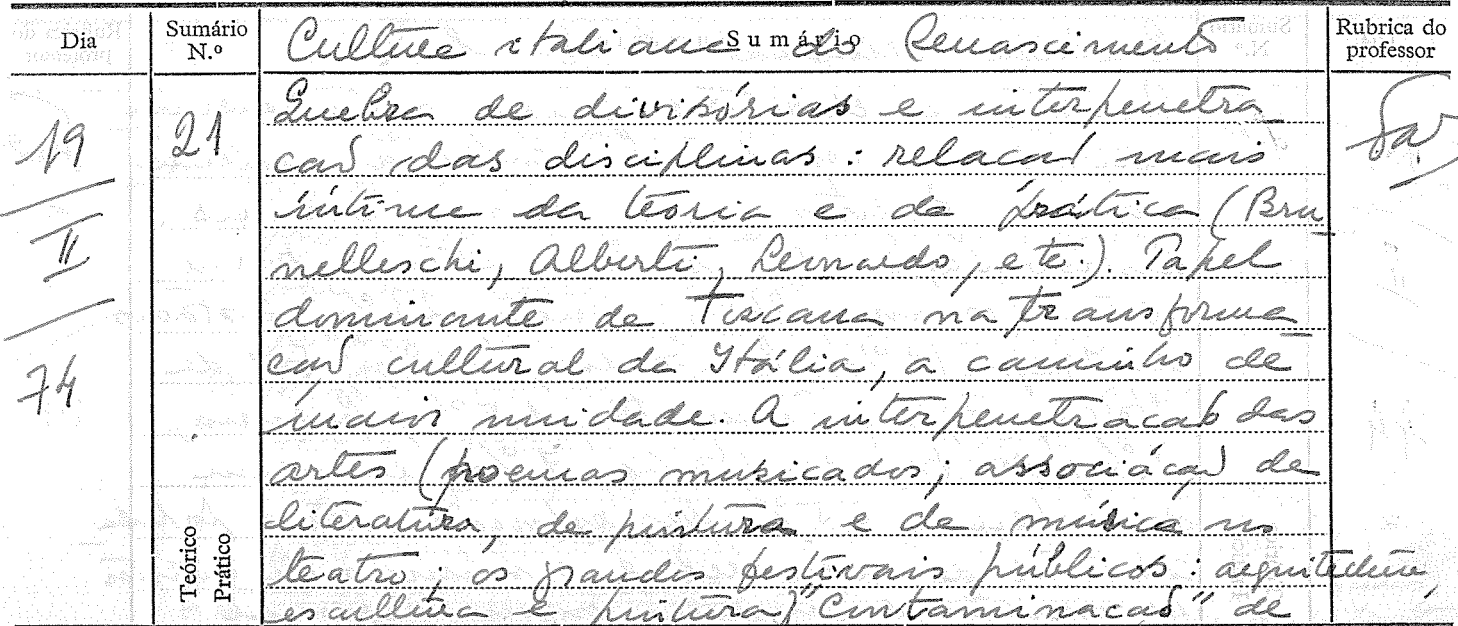 Dia
Sumário N.º
Sumário
Rubrica do professor
Cultura italiana do Renascimento
19
II
74
21
Quebra de divisórias e interpenetra
ção das disciplinas: relação mais
íntima da teoria e da prática (Bru
nelleschi, Alberti, Leonardo, etc.). Papel
dominante da Toscana na transforma
ção cultural da Itália, a caminho de
maior unidade. A interpenetração das
artes (poemas musicados; associação de
literatura, de pintura e de música no
teatro; os grandes festivais públicos: arquitectura,
escultura e pintura) "Contaminação" de
Teórico
Prático